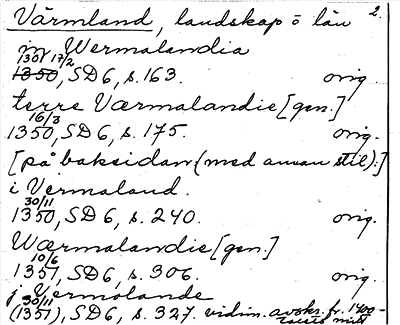 Värmland, landskap o län 2.
in Wermalandia
1350 17/2, SD 6, s. 163. orig.
terre Værmalandie [gen.]
1350 16/3, SD 6, s. 175. orig.
[på baksidan (med annan stil):]
i Vermaland.
1350 30/11, SD 6, s. 240. orig.
Wærmalandie [gen.]
1351 10/6, SD 6, s. 306. orig.
j Vermolande
(1351) 30/11, SD 6, s. 327. vidim. avskr. fr. 1400-
talets mitt